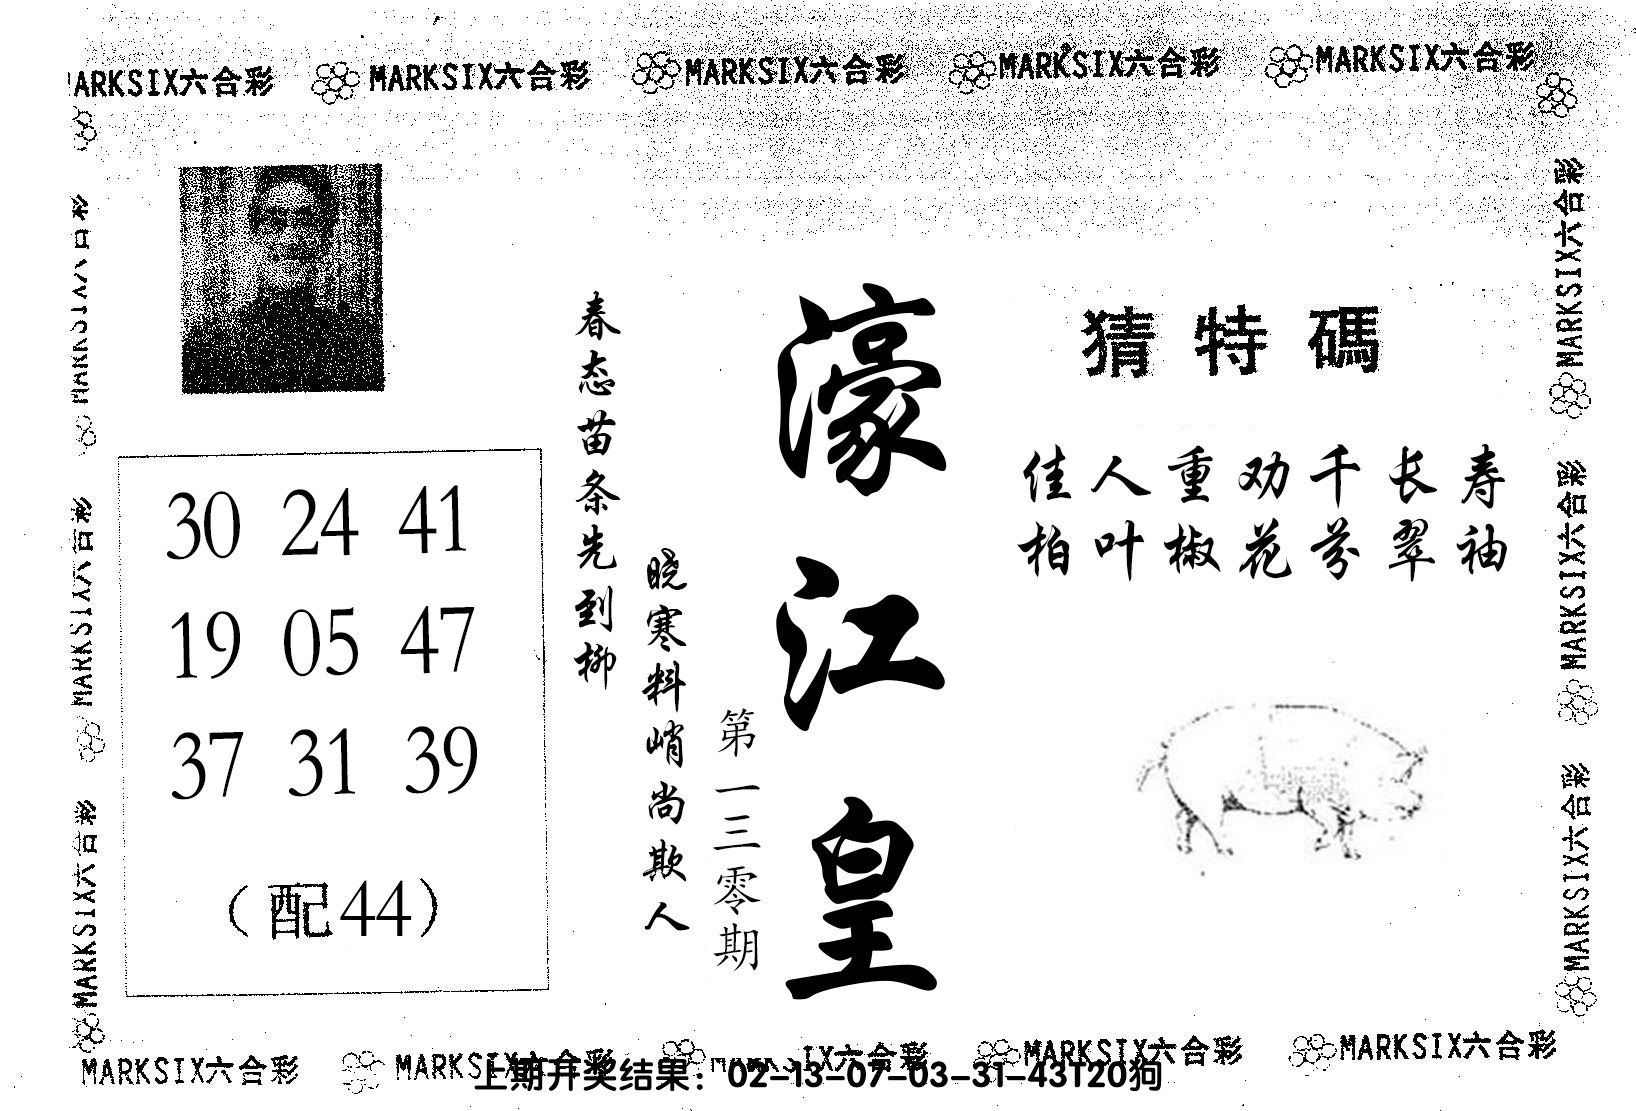 MARKSIX六合彩 MARKSIX六合彩 MARKSIX六合彩 MARKSIX六合彩
猜特碼
佳人重劝千长寿
柏叶椒花芬翠袖
濠江皇
第一三零期
春态苗条先到柳
晓寒料峭尚欺人
30 24 41
19 05 47
37 31 39
（配44）
MARKSIX六合彩
MARKSIX六合彩
MARKSIX六合彩
MARKSIX六合彩
MARKSIX六合彩
MARKSIX六合彩 MARKSIX六合彩 MARKSIX六合彩 MARKSIX六合彩
上期开奖结果：02-13-07-03-31-43T20狗